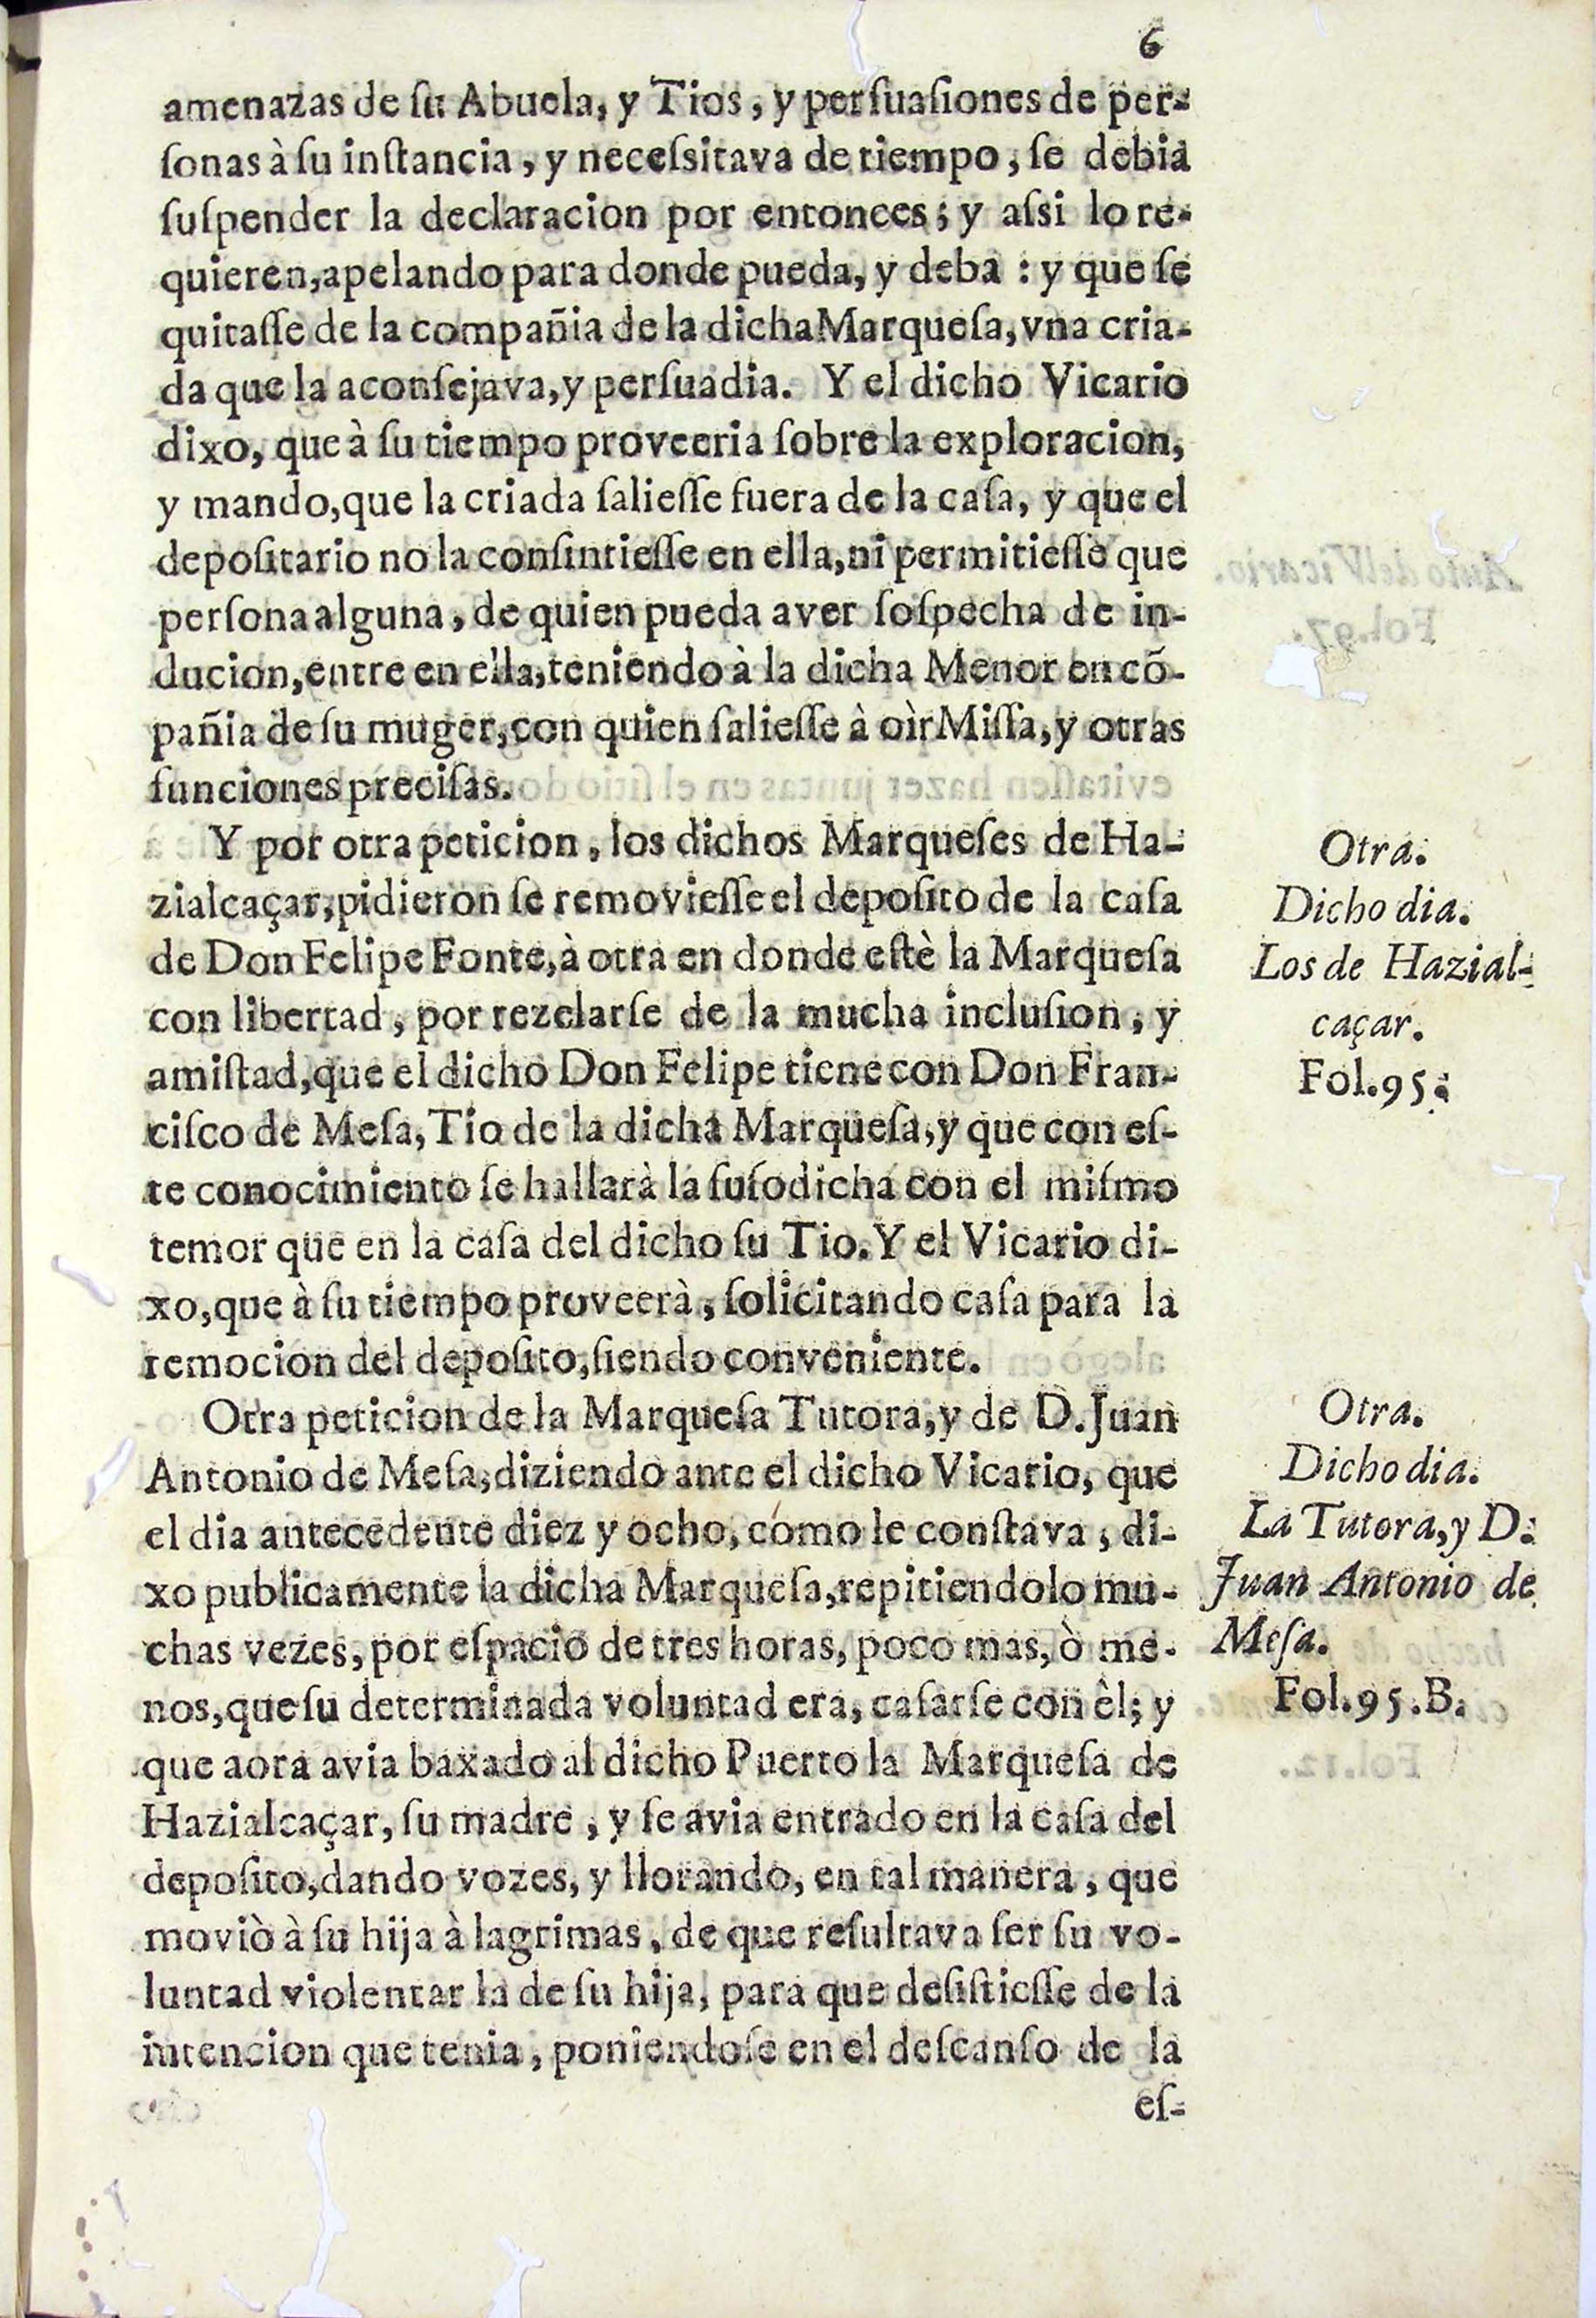 6
amenazas de ſu Abuela, y Tios, y perſuaſiones de per-
ſonas à ſu inſtancia, y neceſsitava de tiempo, ſe debia
ſuſpender la declaracion por entonces; y aſsi lo re-
quieren, apelando para donde pueda, y deba : y que ſe
quitaſſe de la compañia de la dicha Marqueſa, vna cria-
da que la aconſejava, y perſuadia. Y el dicho Vicario
dixo, que à ſu tiempo proveeria ſobre la exploracion,
y mando, que la criada ſalieſſe fuera de la caſa, y que el
depoſitario no la conſintieſſe en ella, ni permitieſſe que
perſona alguna, de quien pueda aver ſoſpecha de in-
ducion, entre en ella, teniendo à la dicha Menor en cõ-
pañia de ſu muger, con quien ſalieſſe à oìr Miſſa, y otras
funciones preciſas.
Y por otra peticion, los dichos Marqueſes de Ha-
zialcaçar, pidieron ſe removieſſe el depoſito de la caſa
de Don Felipe Fonte, à otra en donde eſtè la Marqueſa
con libertad, por rezelarſe de la mucha incluſion, y
amiſtad, que el dicho Don Felipe tiene con Don Fran-
ciſco de Meſa, Tio de la dicha Marqueſa, y que con eſ-
te conocimiento ſe hallarà la ſuſodicha con el miſmo
temor que en la caſa del dicho ſu Tio. Y el Vicario di-
xo, que à ſu tiempo proveerà, ſolicitando caſa para la
remocion del depoſito, ſiendo conveniente.
Otra peticion de la Marqueſa Tutora, y de D. Juan
Antonio de Meſa, diziendo ante el dicho Vicario, que
el dia antecedente diez y ocho, como le conſtava, di-
xo publicamente la dicha Marqueſa, repitiendolo mu-
chas vezes, por eſpacio de tres horas, poco mas, ò me-
nos, que ſu determinada voluntad era, caſarſe con èl; y
que aora avia baxado al dicho Puerto la Marqueſa de
Hazialcaçar, ſu madre, y ſe avia entrado en la caſa del
depoſito, dando vozes, y llorando, en tal manera, que
moviò à ſu hija à lagrimas, de que reſultava ſer ſu vo-
luntad violentar la de ſu hija, para que deſiſtieſſe de la
intencion que tenia, poniendoſe en el deſcanſo de la
eſ-
Otra.
Dicho dia.
Los de Hazial-
caçar.
Fol. 95.
Otra.
Dicho dia.
La Tutora, y D.
Juan Antonio de
Meſa.
Fol. 95. B.